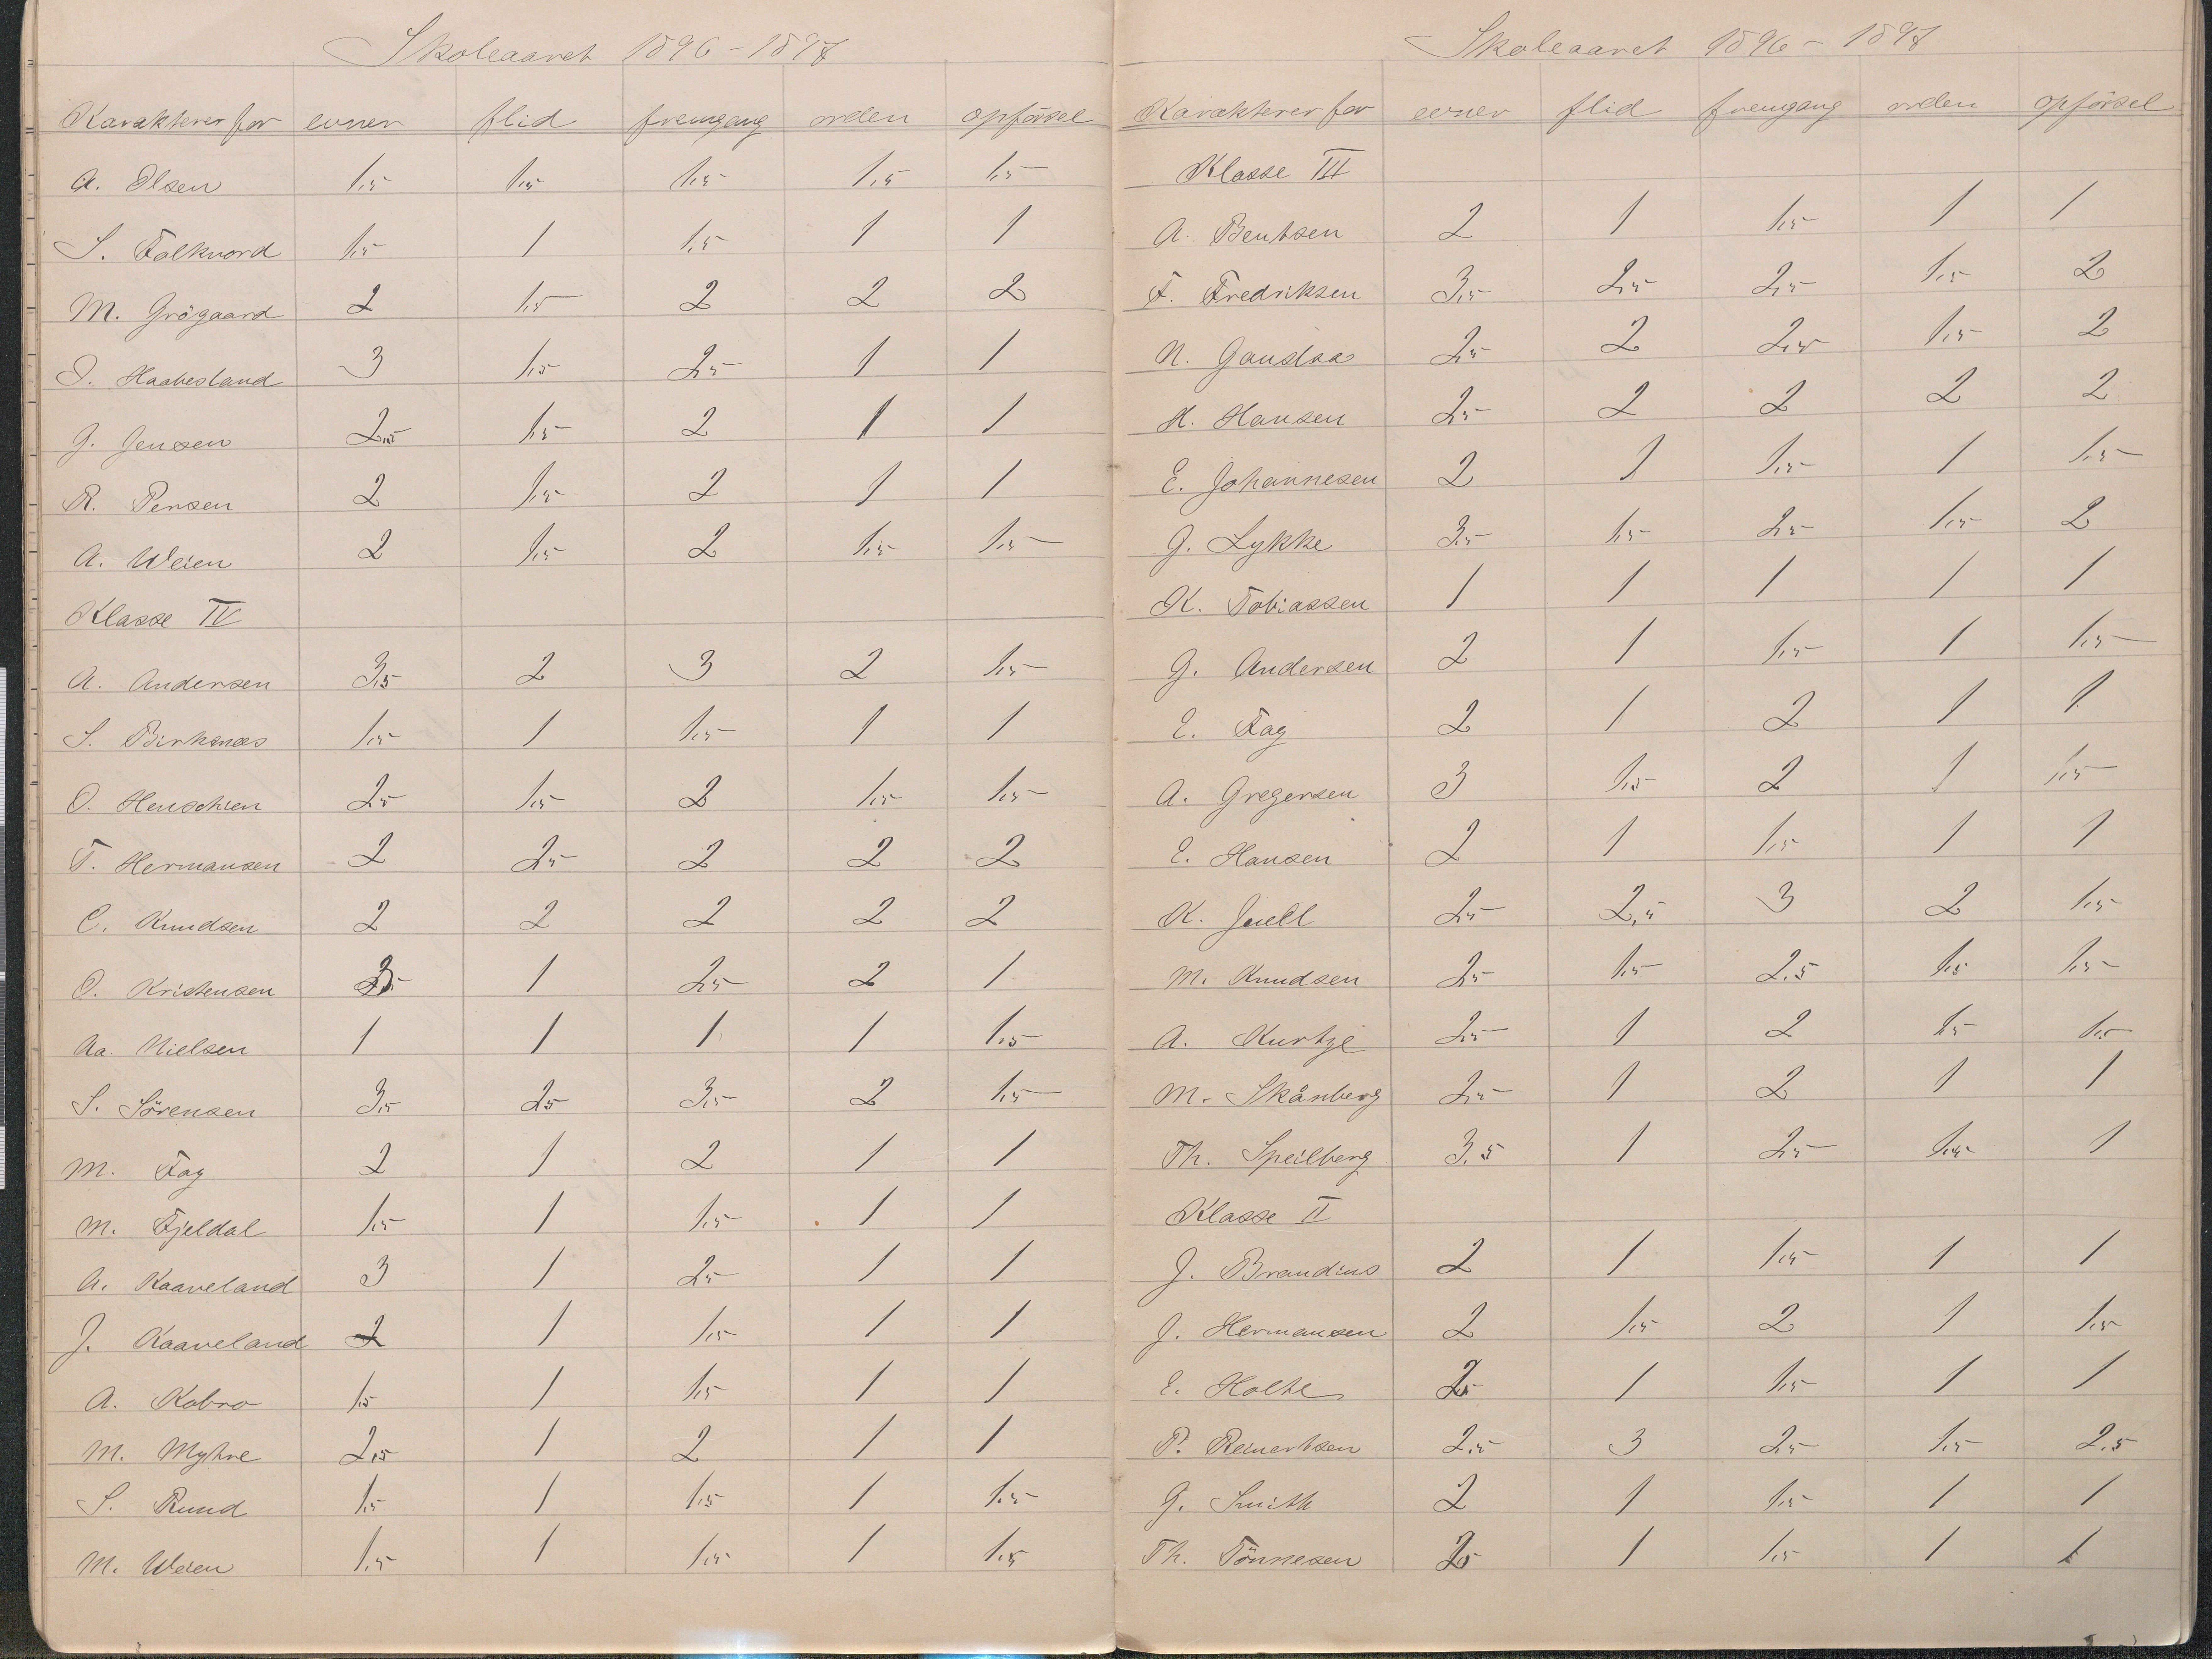 Skoleaaret 1896-1897
Karakterer for evner flid fremgang orden opförsel
A. Olsen 1,5 1,5 1,5 1,5 1,5
S. Falkvord 1,5 1 1,5 1 1
M. Grögaard 2 1,5 2 2 2
O. Haabesland 3 1,5 2,5 1 1
G. Jensen 2,5 1,5 2 1 1
R. Pensen 2 1,5 2 1 1
A. Weien 2 1,5 2 1,5 1,5
Klasse IV
A. Andersen 3,5 2 3 2 1,5
S. Birkenæs 1,5 1 1,5 1 1
O. Henschien 2,5 1,5 2 1,5 1,5
T. Hermansen 2 2,5 2 2 2
C. Knudsen 2 2 2 2 2
O. Kristensen 1 2,5 2 1
Aa. Nielsen 1 1 1 1 1,5
S. Sörensen 3,5 2,5 3,5 2 1,5
M. Fag 2 1 2 1 1
M. Fjeldal 1,5 1 1,5 1 1
A. Kaaveland 3 1 2,5 1 1
J. Kaaveland 2 1 1,5 1 1
A. Kobro 1,5 1 1,5 1 1
M. Myhre 2,5 1 2 1 1
S. Rund 1,5 1 1,5 1 1,5
M. Weien 1,5 1 1,5 1 1,5
Skoleaaret 1896-1897
Karakterer for evner flid fremgang orden opförsel
Klasse III
A. Bentsen 2 1 1,5 1 1
F. Fredriksen 3,5 2,5 2,5 1,5 2
N. Gauslaa 2,5 2 2,5 1,5 2
H. Hansen 2,5 2 2 2 2
E. Johannesen 2 1 1,5 1 1,5
G. Lykke 3,5 1,5 2,5 1,5 2
K. Tobiassen 1 1 1 1 1
G. Andersen 2 1 1,5 1 1,5
E. Fag 2 1 2 1 1
A. Gregersen 3 1,5 2 1 1,5
E. Hansen 2 1 1,5 1 1
K. Juell 2,5 2,5 3 2 1,5
M. Knudsen 2,5 1,5 2.5 1,5 1,5
A. Kurtze 2,5 1 2 1,5 1,5
M. Skånberg 2,5 1 2 1 1
Th. Speilberg 3.5 1 2,5 1,5 1
Klasse II
J. Brandius 2 1 1,5 1 1
J. Hermansen 2 1,5 2 1 1,5
E. Holte 2,5 1 1,5 1 1
P. Reinertsen 2,5 3 2,5 1,5 2.5
G. Smith 2 1 1,5 1 1
Th. Tönnesen 2,5 1 1,5 1 1